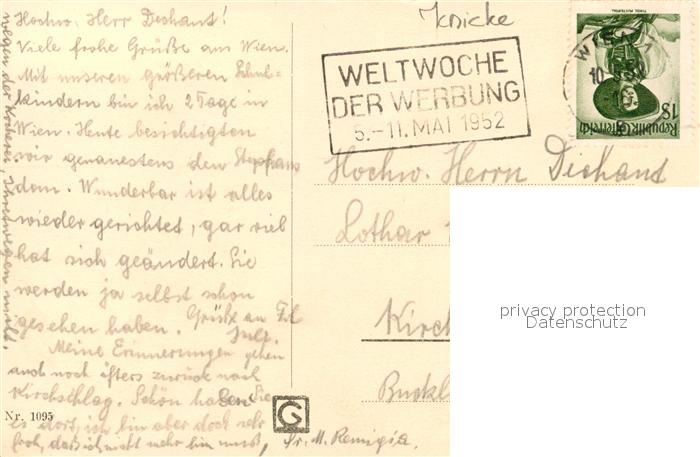 Knicke
WELTWOCHE
DER WERBUNG
5.-11. MAI 1952
WIEN 1
10.
1S
Republik Österreich
Hochw. Herr Dechant!
Viele frohe Grüße aus Wien.
Mit unseren größeren Schul-
kindern bin ich 2 Tage in
Wien. Heute besichtigten
wir genauestens den Stephans
dom. Wunderbar ist alles
wieder gerichtet, gar viel
hat sich geändert. Sie
werden ja selbst schon
gesehen haben. Grüße an Frl
Meine Erinnerungen gehen
auch noch öfters zurück nach
Kirchschlag. Schön haben Sie
es dort, ich bin aber doch sehr
froh, daß ich nicht mehr hin muß,
wegen der Ihretwegen nicht.
Sr. M. Remigia.
Nr. 1095
G
Hochw. Herrn Dechant
Lothar
Kirch
Buckl
privacy protection
Datenschutz